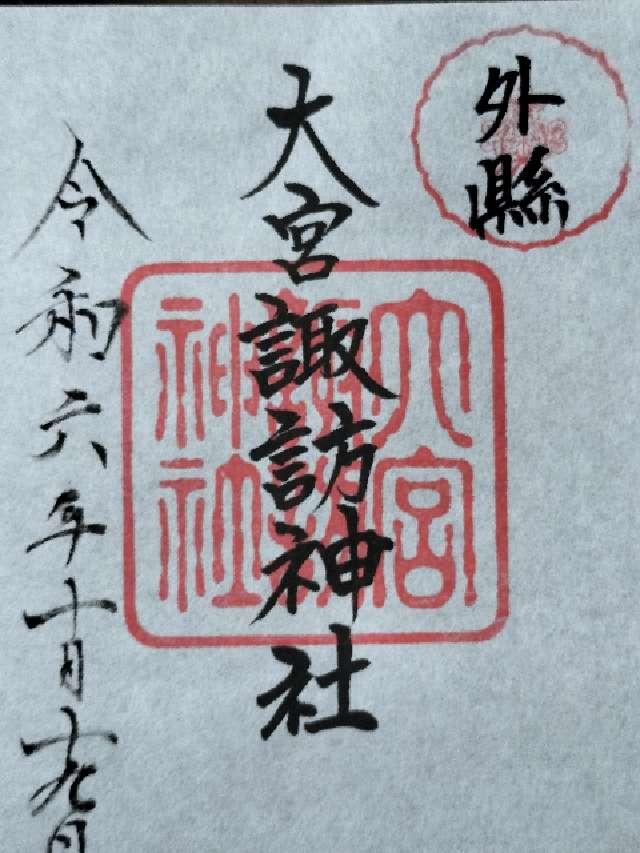 外縣
大宮諏訪神社
大宮
諏訪
神社
令和六年十月十九日